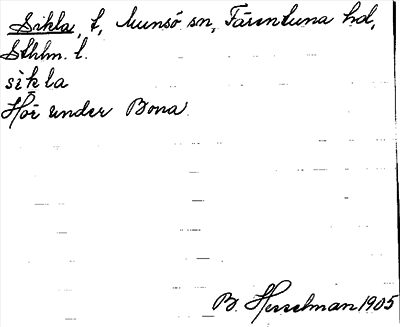 Sikla, t, Munsö sn, Färentuna hd,
Sthlm. l.
sikla
Hör under Bona.
B. Hesselman 1905